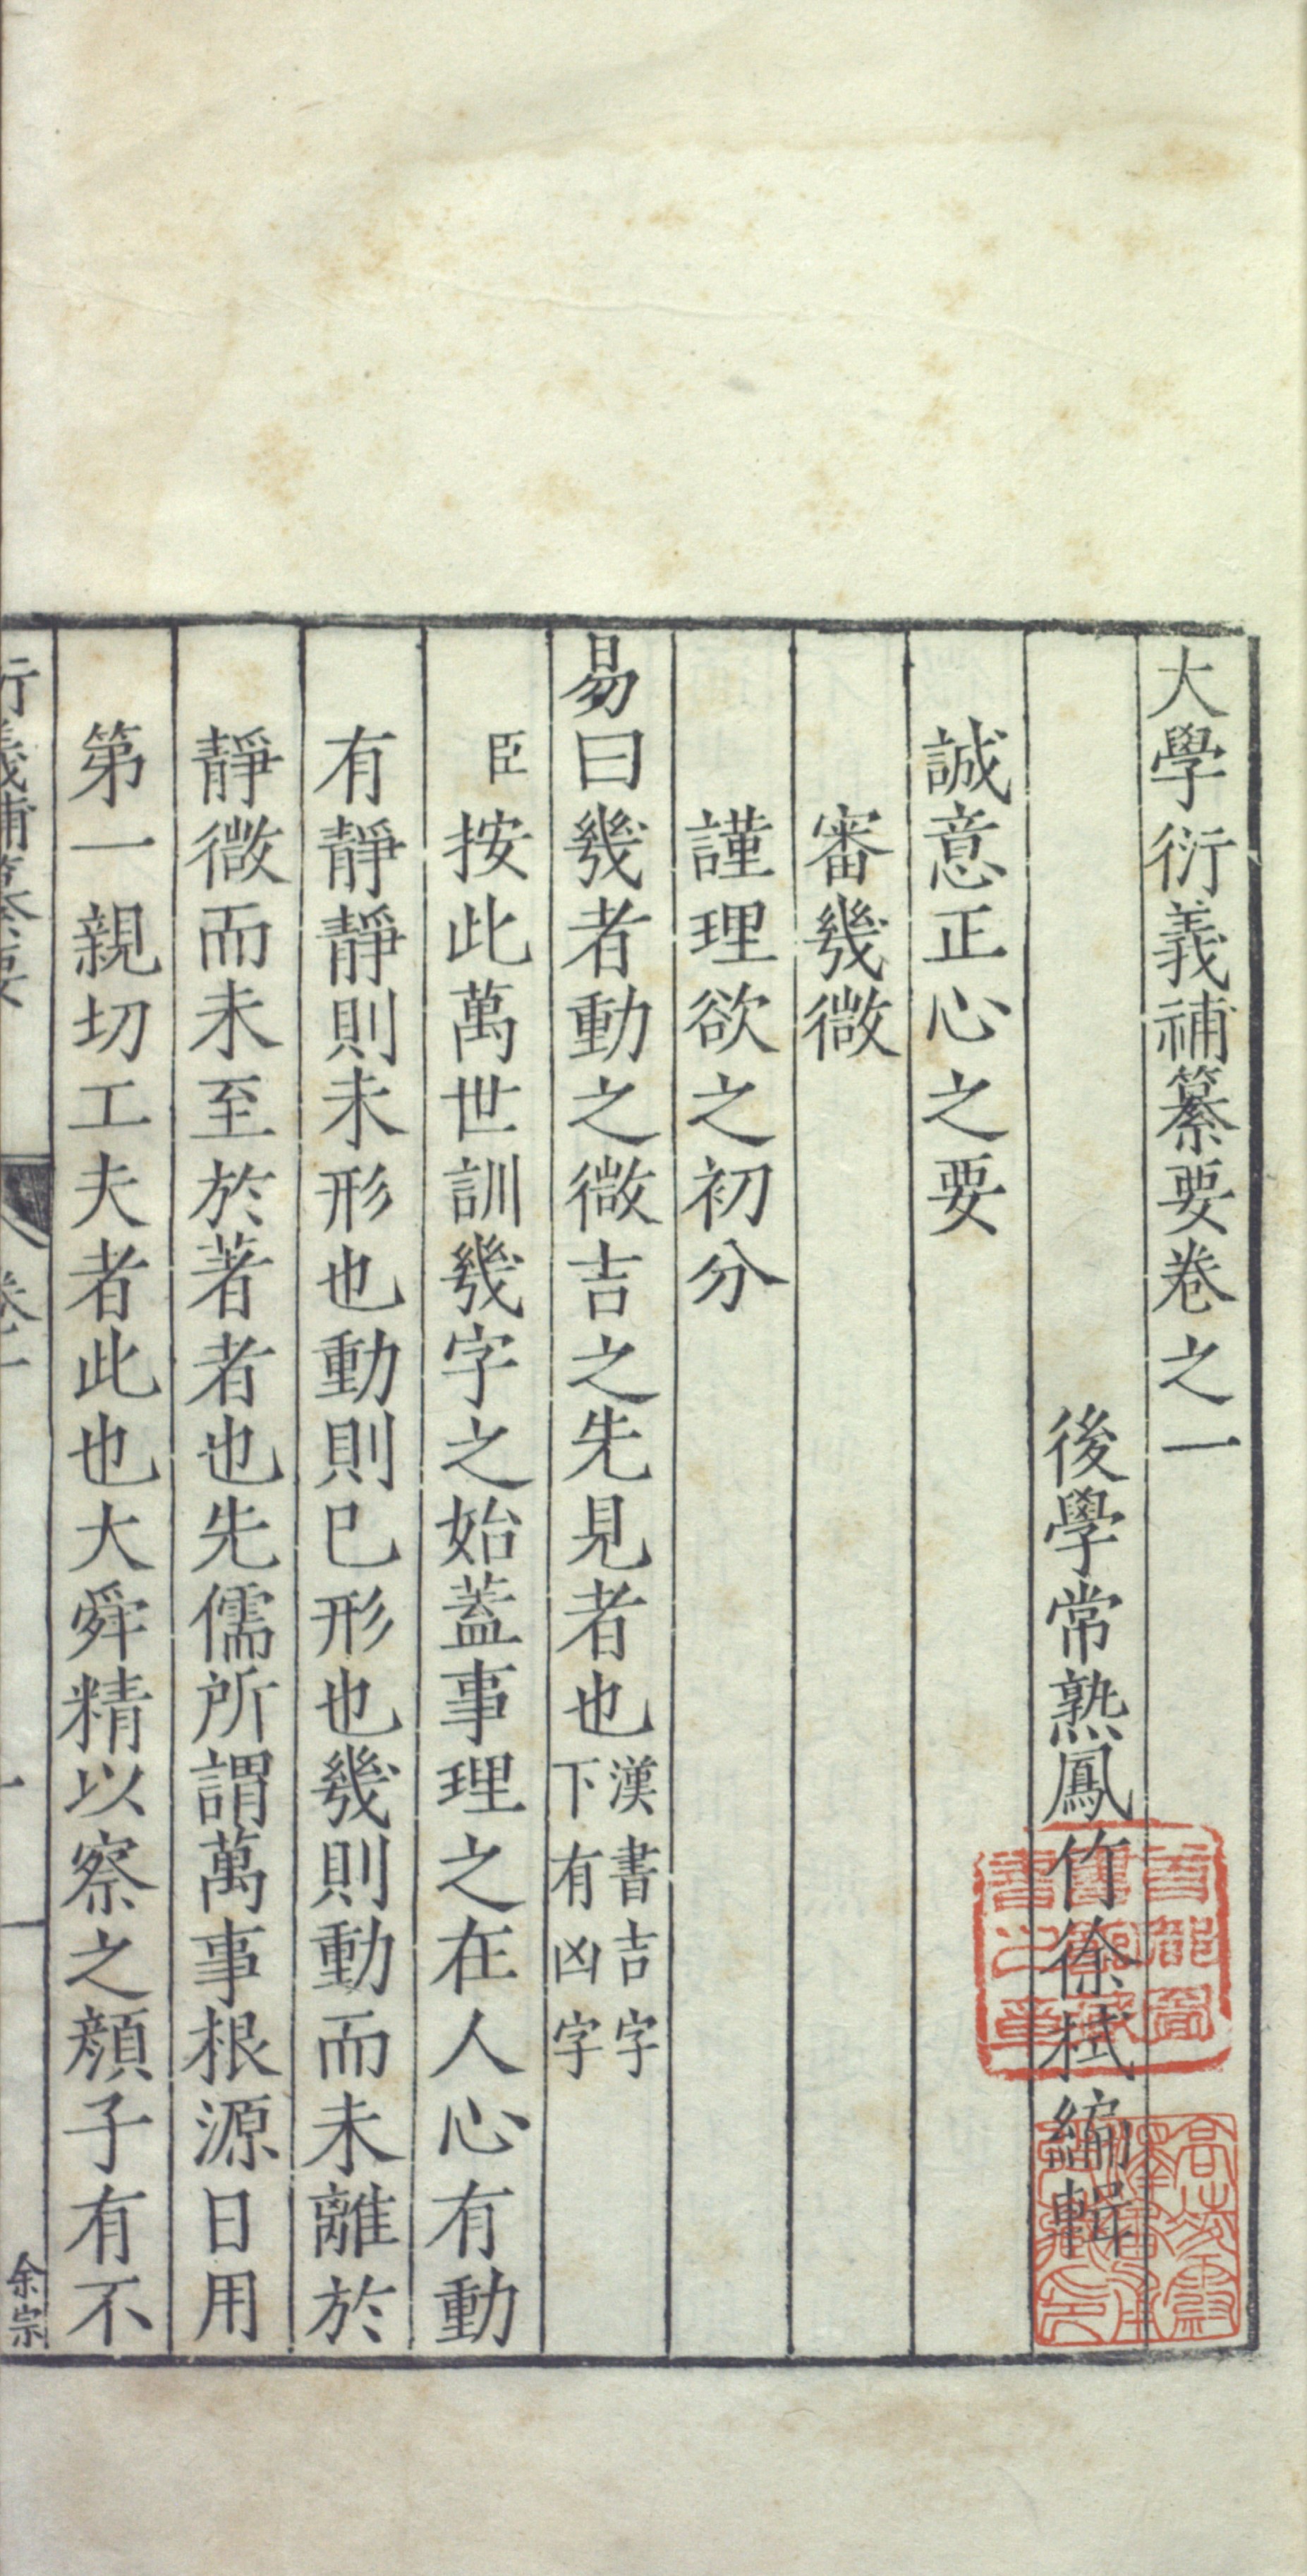 大學衍義補纂要卷之一
後學常熟鳳竹徐栻編輯
誠意正心之要
審幾微
謹理欲之初分
易曰幾者動之微吉之先見者也漢書吉字下有凶字
臣按此萬世訓幾字之始蓋事理之在人心有動
有靜靜則未形也動則已形也幾則動而未離於
靜微而未至於著者也先儒所謂萬事根源日用
第一親切工夫者此也大舜精以察之顏子有不
衍義補纂要 卷一 一 余宗
首都圖書館藏書之章